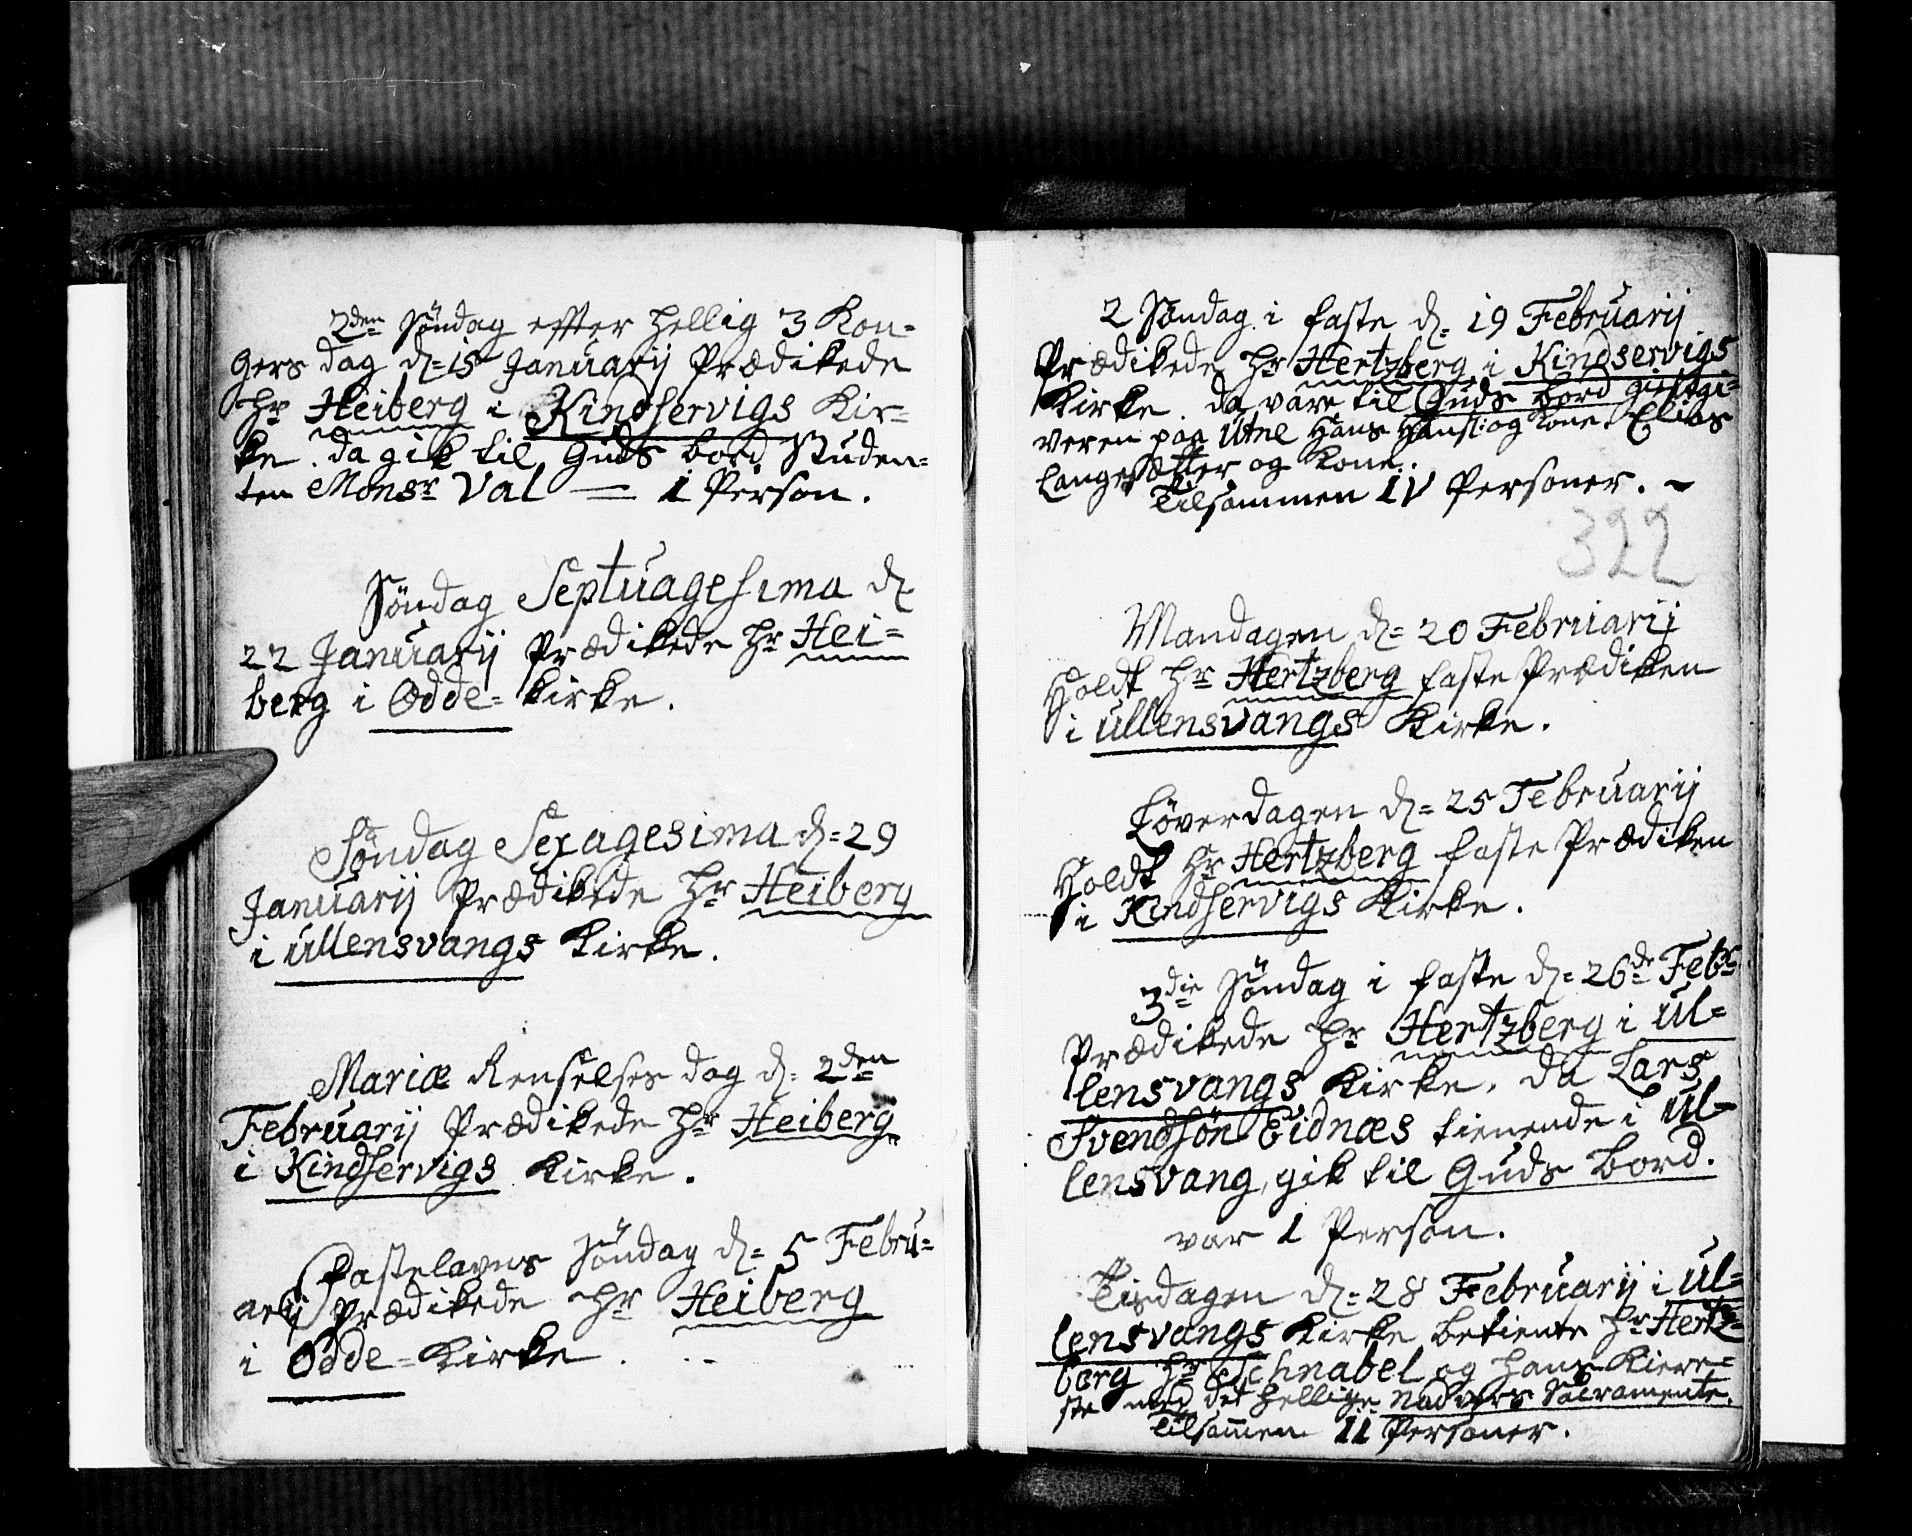 2den Söndag effter Hellig 3 Kon-
gers dag d: 15 Januarij Prædikede
Hr Heiberg i Kindservigs Kir-
ke. da gik til Guds bord Studen-
ten Monsr Val — 1 Person.
Söndag Septuagesima d:
22 Januarij Prædikede Hr Hei-
berg i Odde-Kirke.
Söndag Sexagesima d: 29
Januarij Prædikede Hr Heiberg
i Ullensvangs Kirke.
Mariæ Renselses dag d: 2den
Februarij Prædikede Hr Heiberg
i Kindservigs Kirke.
Fastelavns Söndag d: 5 Febru-
arij Prædikede Hr Heiberg
i Odde-Kirke.
2 Söndag i faste d: 19 Februarij
Prædikede Hr Hertzberg i Kindservigs
Kirke. da vare til Guds bord giestgi-
veren paa Utne Hans Hans: og Kone. Elias
Langesætter og Kone.
Tilsammen IV Personer. -
322
Mandagen d: 20 Februarij
Holdt Hr Hertzberg faste Prædiken
i Ullensvangs Kirke.
Löverdagen d: 25 Februarij
Holdt Hr Hertzberg faste Prædiken
i Kindservigs Kirke.
3die Söndag i faste d: 26de Febr
Prædikede Hr Hertzberg i Ul-
lensvangs Kirke. da Lars
Svendsön Eidnæs tienende i Ul-
lensvang, gik til Guds bord.
var 1 Person.
Tisdagen d: 28 Februarij i Ul-
lensvangs Kirke betiente Hr Hertz-
berg Hr Schnabel og Hans Kiere-
ste med det Hellige Nadvers Sacramente.
Tilsammen II Personer.